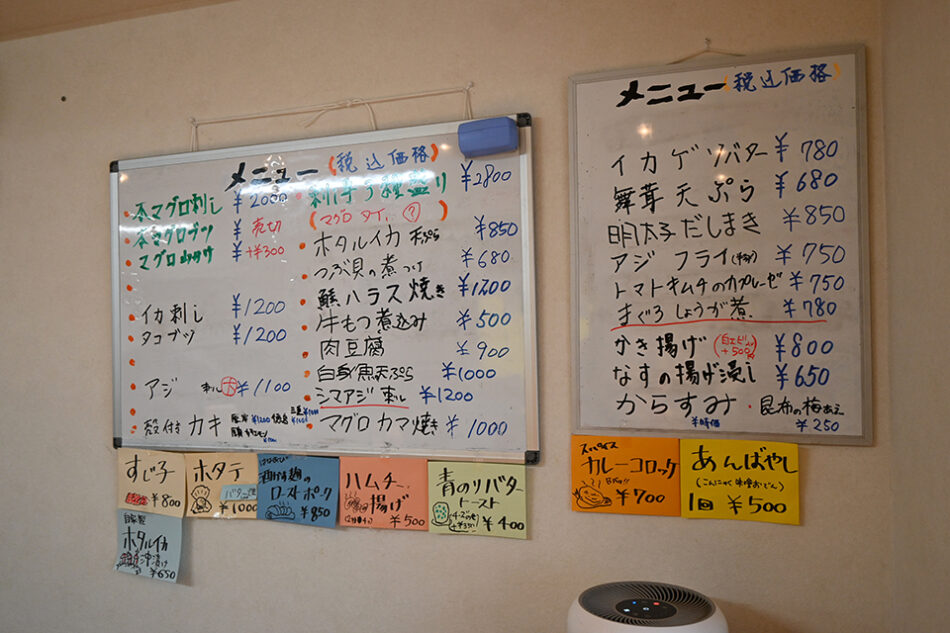 メニュー (税込価格)
本マグロ刺し ¥2000
本マグロブツ ¥ 売切
マグロ山かけ ¥ +¥300
イカ刺し ¥1200
タコブツ ¥1200
アジ 刺し 大 ¥1100
殻付 カキ
刺身5種盛り ¥2800
(マグロ タイ, ?)
ホタルイカ 天ぷら ¥850
つぶ貝の煮つけ ¥680
鮭ハラス焼き ¥1200
牛もつ煮込み ¥500
肉豆腐 ¥900
白身魚天ぷら ¥1000
シマアジ 刺し ¥1200
マグロ カマ 焼き ¥1000
メニュー (税込価格)
イカゲソバター ¥780
舞茸天ぷら ¥680
明太子だしまき ¥850
アジ フライ ¥750
トマトキムチのカプレーゼ ¥750
まぐろしょうが煮. ¥780
かき揚げ (白エビ +500) ¥800
なすの揚げ浸し ¥650
からすみ ¥時価
・昆布の梅あえ ¥250
すじ子
¥800
ホタテ
バター焼
¥1000
ローストポーク
¥850
ハムチーズ
揚げ
¥500
青のりバター
トースト
(チーズのせ +¥50)
¥400
自家製
ホタルイカ
沖漬け
¥650
スパイス
カレーコロッケ
¥700
あんばやし
(こんにゃく味噌おでん)
1皿 ¥500